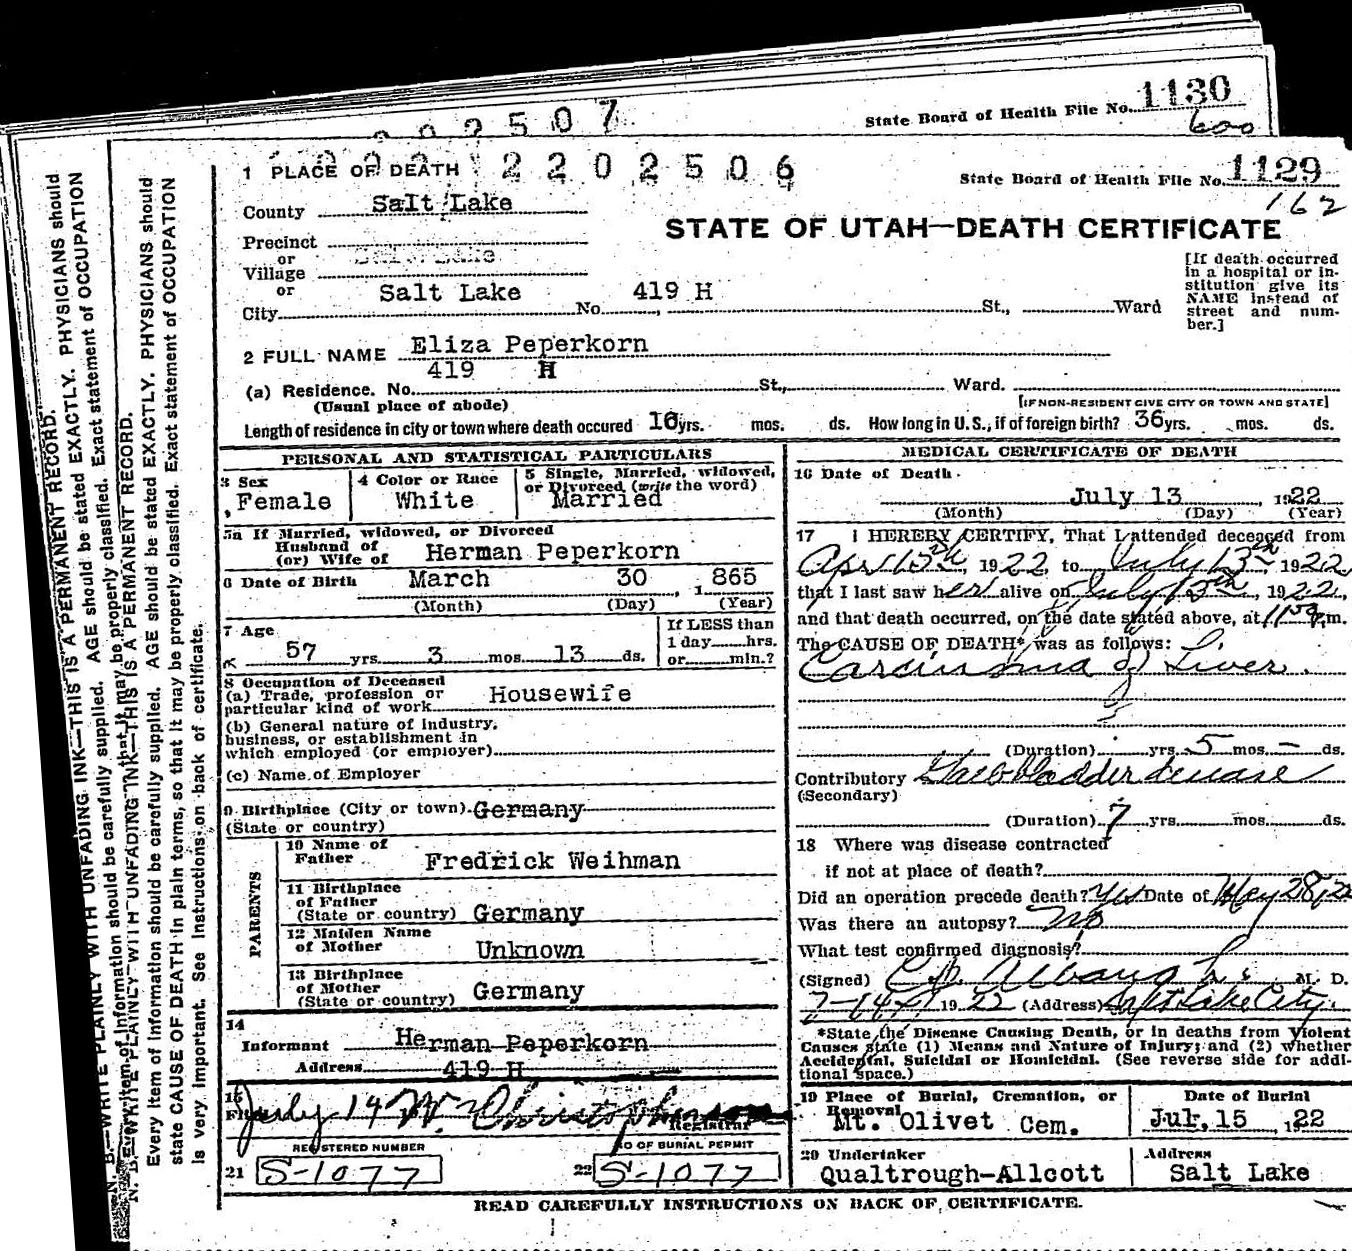 State Board of Health File No. 1130
600
2507
2202506
State Board of Health File No. 1129
162
1 PLACE OF DEATH
County Salt Lake
STATE OF UTAH—DEATH CERTIFICATE
Precinct
or
Village
or
City Salt Lake No. 419 H St., Ward
[If death occurred
in a hospital or in-
stitution give its
NAME instead of
street and num-
ber.]
2 FULL NAME Eliza Peperkorn
(a) Residence. No. 419 H St., Ward.
(Usual place of abode)
[IF NON-RESIDENT GIVE CITY OR TOWN AND STATE]
Length of residence in city or town where death occured 10 yrs. mos. ds. How long in U.S., if of foreign birth? 36 yrs. mos. ds.
PERSONAL AND STATISTICAL PARTICULARS
3 Sex
Female
4 Color or Race
White
5 Single, Married, widowed,
or Divorced (write the word)
Married
5a If Married, widowed, or Divorced
Husband of
(or) Wife of Herman Peperkorn
6 Date of Birth March 30, 1865
(Month) (Day) (Year)
7 Age
57 yrs. 3 mos. 13 ds.
If LESS than
1 day hrs.
or min.?
8 Occupation of Deceased
(a) Trade, profession or
particular kind of work Housewife
(b) General nature of industry,
business, or establishment in
which employed (or employer)
(c) Name of Employer
9 Birthplace (City or town) Germany
(State or country)
PARENTS
10 Name of
Father Fredrick Weihman
11 Birthplace
of Father
(State or country) Germany
12 Maiden Name
of Mother Unknown
13 Birthplace
of Mother
(State or country) Germany
14
Informant Herman Peperkorn
Address 419 H
15
Filed July 14 W. Christopherson
Registrar
REGISTERED NUMBER
21 S-1077
NO OF BURIAL PERMIT
22 S-1077
MEDICAL CERTIFICATE OF DEATH
16 Date of Death
July 13, 1922
(Month) (Day) (Year)
17 I HEREBY CERTIFY, That I attended deceased from
Apr 15th, 1922, to July 13th, 1922,
that I last saw her alive on July 13th, 1922,
and that death occurred, on the date stated above, at m.
The CAUSE OF DEATH* was as follows:
Carcinoma of Liver.
(Duration) yrs. 5 mos. – ds.
Contributory Gall bladder disease
(Secondary)
(Duration) 7 yrs. mos. ds.
18 Where was disease contracted
if not at place of death?
Did an operation precede death? Yes Date of May 28, 22
Was there an autopsy? No
What test confirmed diagnosis?
(Signed) M. D.
7-14th 1922 (Address) Salt Lake City.
*State the Disease Causing Death, or in deaths from Violent
Causes state (1) Means and Nature of Injury; and (2) whether
Accidental, Suicidal or Homicidal. (See reverse side for addi-
tional space.)
19 Place of Burial, Cremation, or
Removal
Mt. Olivet Cem.
Date of Burial
Jul. 15, 1922
20 Undertaker
Qualtrough-Allcott
Address
Salt Lake
READ CAREFULLY INSTRUCTIONS ON BACK OF CERTIFICATE.
N. B.—WRITE PLAINLY WITH UNFADING INK—THIS IS A PERMANENT RECORD.
Every item of information should be carefully supplied. AGE should be stated EXACTLY. PHYSICIANS should
state CAUSE OF DEATH in plain terms, so that it may be properly classified. Exact statement of OCCUPATION
is very important. See instructions on back of certificate.
N. B.—WRITE PLAINLY WITH UNFADING INK—THIS IS A PERMANENT RECORD.
Every item of information should be carefully supplied. AGE should be stated EXACTLY. PHYSICIANS should
that it may be properly classified. Exact statement of OCCUPATION